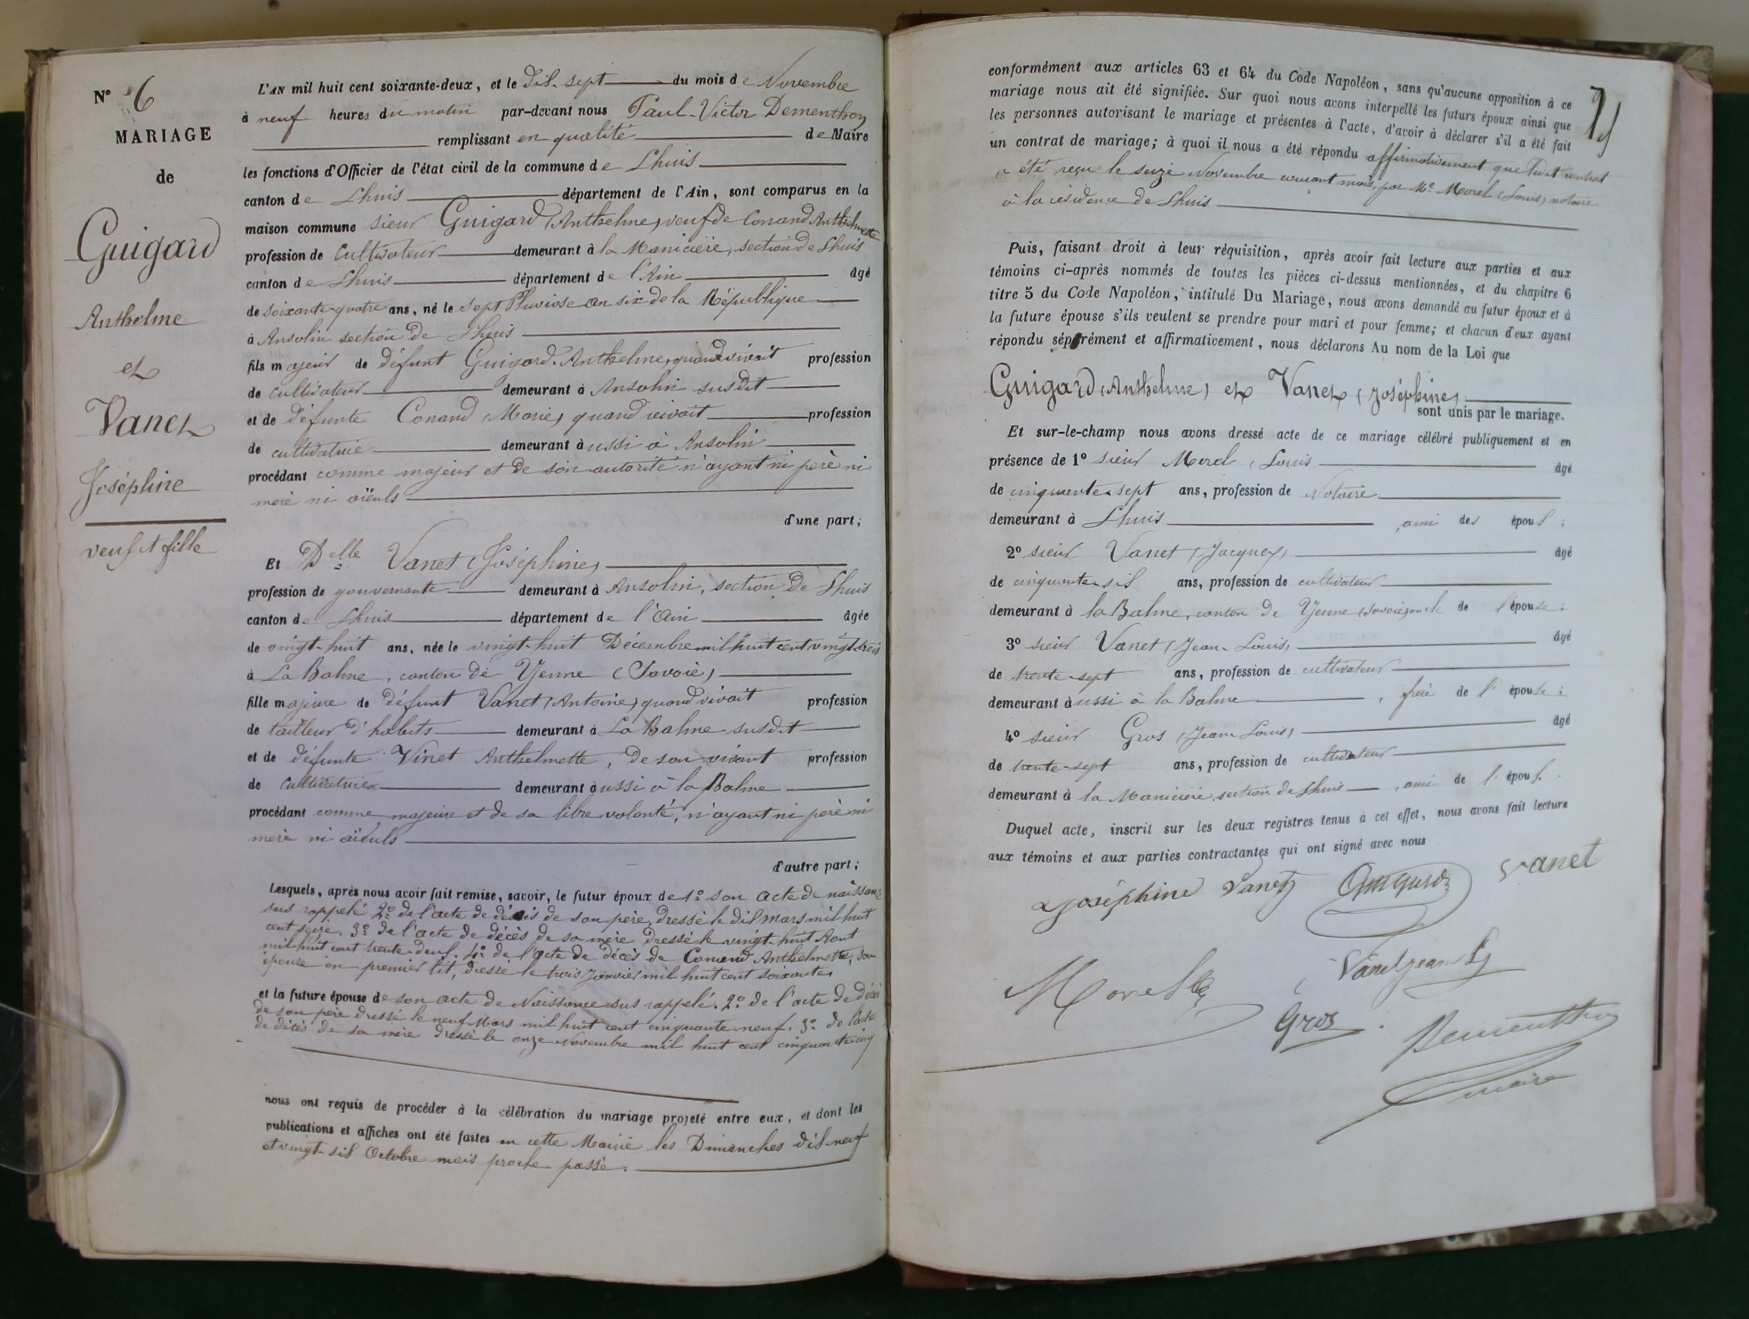 N° 6
MARIAGE
de
Guigard
Anthelme
et
Vanet
Joséphine
veuf et fille
L'AN mil huit cent soixante-deux, et le dix-sept du mois de Novembre
à neuf heures du matin par-devant nous Paul-Victor Dementhon
remplissant en qualité de Maire
les fonctions d'Officier de l'état civil de la commune de Lhuis
canton de Lhuis département de l'Ain, sont comparus en la
maison commune sieur Guigard (Anthelme) veuf de Conand Anthelmette
profession de Cultivateur demeurant à la Manicière, section de Lhuis
canton de Lhuis département de l'Ain âgé
de soixante-quatre ans, né le sept Pluviose an six de la République
à Ansolin section de Lhuis
fils majeur de défunt Guigard Anthelme, quand vivait profession
de cultivateur demeurant à Ansolin susdit
et de défunte Conand (Marie) quand vivait profession
de cultivatrice demeurant aussi à Ansolin
procédant comme majeur et de son autorité n'ayant ni père ni
mère ni aïeuls
d'une part;
Et Delle Vanet (Joséphine)
profession de gouvernante demeurant à Ansolin, section de Lhuis
canton de Lhuis département de l'Ain âgée
de vingt-huit ans, née le vingt-huit Décembre mil huit cent vingt-trois
à La Balme, canton de Yenne (Savoie)
fille majeure de défunt Vanet (Antoine) quand vivait profession
de tailleur d'habits demeurant à La Balme susdit
et de défunte Vinet Anthelmette, de son vivant profession
de Cultivatrice demeurant aussi à la Balme
procédant comme majeure et de sa libre volonté, n'ayant ni père ni
mère ni aïeuls
d'autre part;
Lesquels, après nous avoir fait remise, savoir, le futur époux de 1° son acte de naissance
sus rappelé 2° de l'acte de décès de son père, dressé le dix mars mil huit
cent seize. 3° de l'acte de décès de sa mère dressé le vingt-huit Aout
mil huit cent trente-deux. 4° de l'acte de décès de Conand Anthelmette, son
épouse en premier lit, dressé le trois Janvier mil huit cent soixante,
et la future épouse de son acte de Naissance sus rappelé. 2° de l'acte de décès
de son père dressé le neuf Mars mil huit cent cinquante neuf. 3° de l'acte
de décès de sa mère dressé le onze Novembre mil huit cent cinquante cinq
nous ont requis de procéder à la célébration du mariage projeté entre eux, et dont les
publications et affiches ont été faites en cette Mairie les Dimanches dix-neuf
et vingt-six Octobre mois proche passé.
conformément aux articles 63 et 64 du Code Napoléon, sans qu'aucune opposition à ce
mariage nous ait été signifiée. Sur quoi nous avons interpellé les futurs époux ainsi que
les personnes autorisant le mariage et présentes à l'acte, d'avoir à déclarer s'il a été fait
un contrat de mariage; à quoi il nous a été répondu affirmativement que ledit contrat
a été reçu le seize Novembre courant mois, par Me Morel (Louis) notaire
à la résidence de Lhuis
Puis, faisant droit à leur réquisition, après avoir fait lecture aux parties et aux
témoins ci-après nommés de toutes les pièces ci-dessus mentionnées, et du chapitre 6
titre 5 du Code Napoléon, intitulé Du Mariage, nous avons demandé au futur époux et à
la future épouse s'ils veulent se prendre pour mari et pour femme; et chacun d'eux ayant
répondu séparément et affirmativement, nous déclarons Au nom de la Loi que
Guigard (Anthelme) et Vanet (Joséphine)
sont unis par le mariage.
Et sur-le-champ nous avons dressé acte de ce mariage célébré publiquement et en
présence de 1° sieur Morel (Louis) âgé
de cinquante-sept ans, profession de Notaire
demeurant à Lhuis, ami des époux;
2° sieur Vanet (Jacques) âgé
de cinquante-six ans, profession de cultivateur
demeurant à la Balme, canton de Yenne (Savoie) oncle de l'épouse;
3° sieur Vanet (Jean-Louis) âgé
de trente-sept ans, profession de cultivateur
demeurant aussi à la Balme, frère de l'épouse;
4° sieur Gros (Jean-Louis) âgé
de trente-sept ans, profession de cultivateur
demeurant à la Manicière, section de Lhuis, ami de l'époux.
Duquel acte, inscrit sur les deux registres tenus à cet effet, nous avons fait lecture
aux témoins et aux parties contractantes qui ont signé avec nous
Joséphine Vanet Guigard Vanet
Morel Vanet jean L
Gros Dementhon
maire